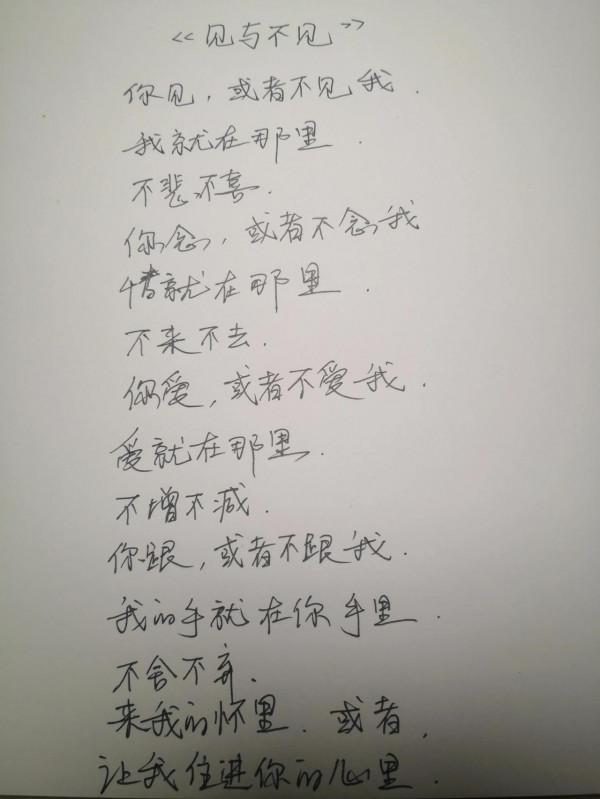 《见与不见》
你见，或者不见我．
我就在那里．
不悲不喜．
你念，或者不念我
情就在那里．
不来不去．
你爱，或者不爱我．
爱就在那里．
不增不减．
你跟，或者不跟我．
我的手就在你手里．
不舍不弃．
来我的怀里．或者，
让我住进你的心里．